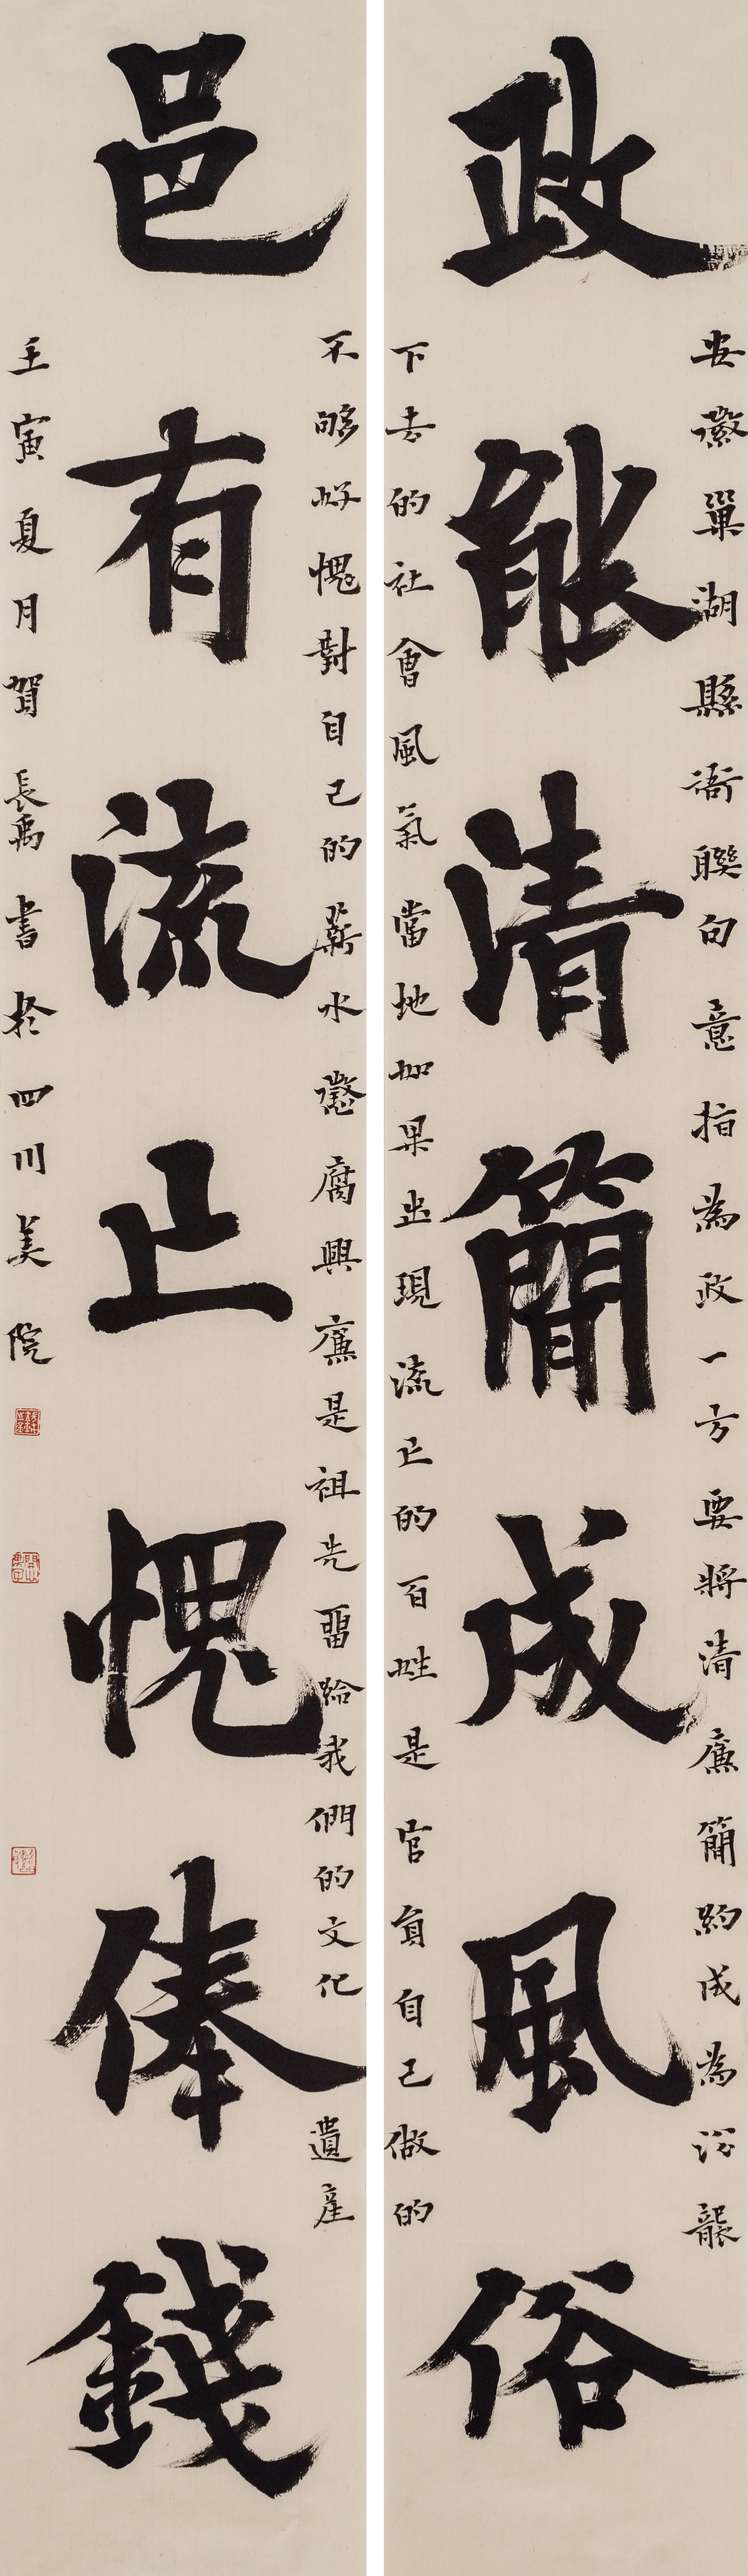 政能清簡成風俗
安徽巢湖縣衙聯句意指為政一方要將清廉簡約成為沿襲
下去的社會風氣當地如果出現流亡的百姓是官員自己做的
邑有流亡愧俸錢
不够好愧對自己的薪水懲腐興廉是祖先留給我們的文化遺產
壬寅夏月賀長禹書於四川美院